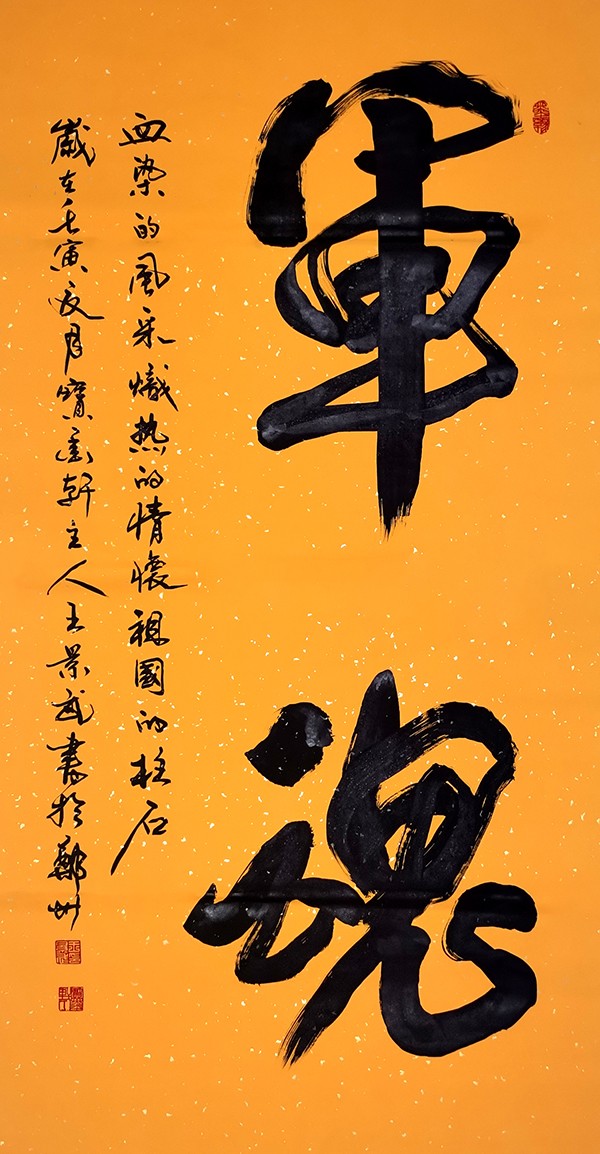 軍魂
血染的風采熾热的情懷祖國的柱石
歲在壬寅夏月寳墨軒主人王景武書於鄭州